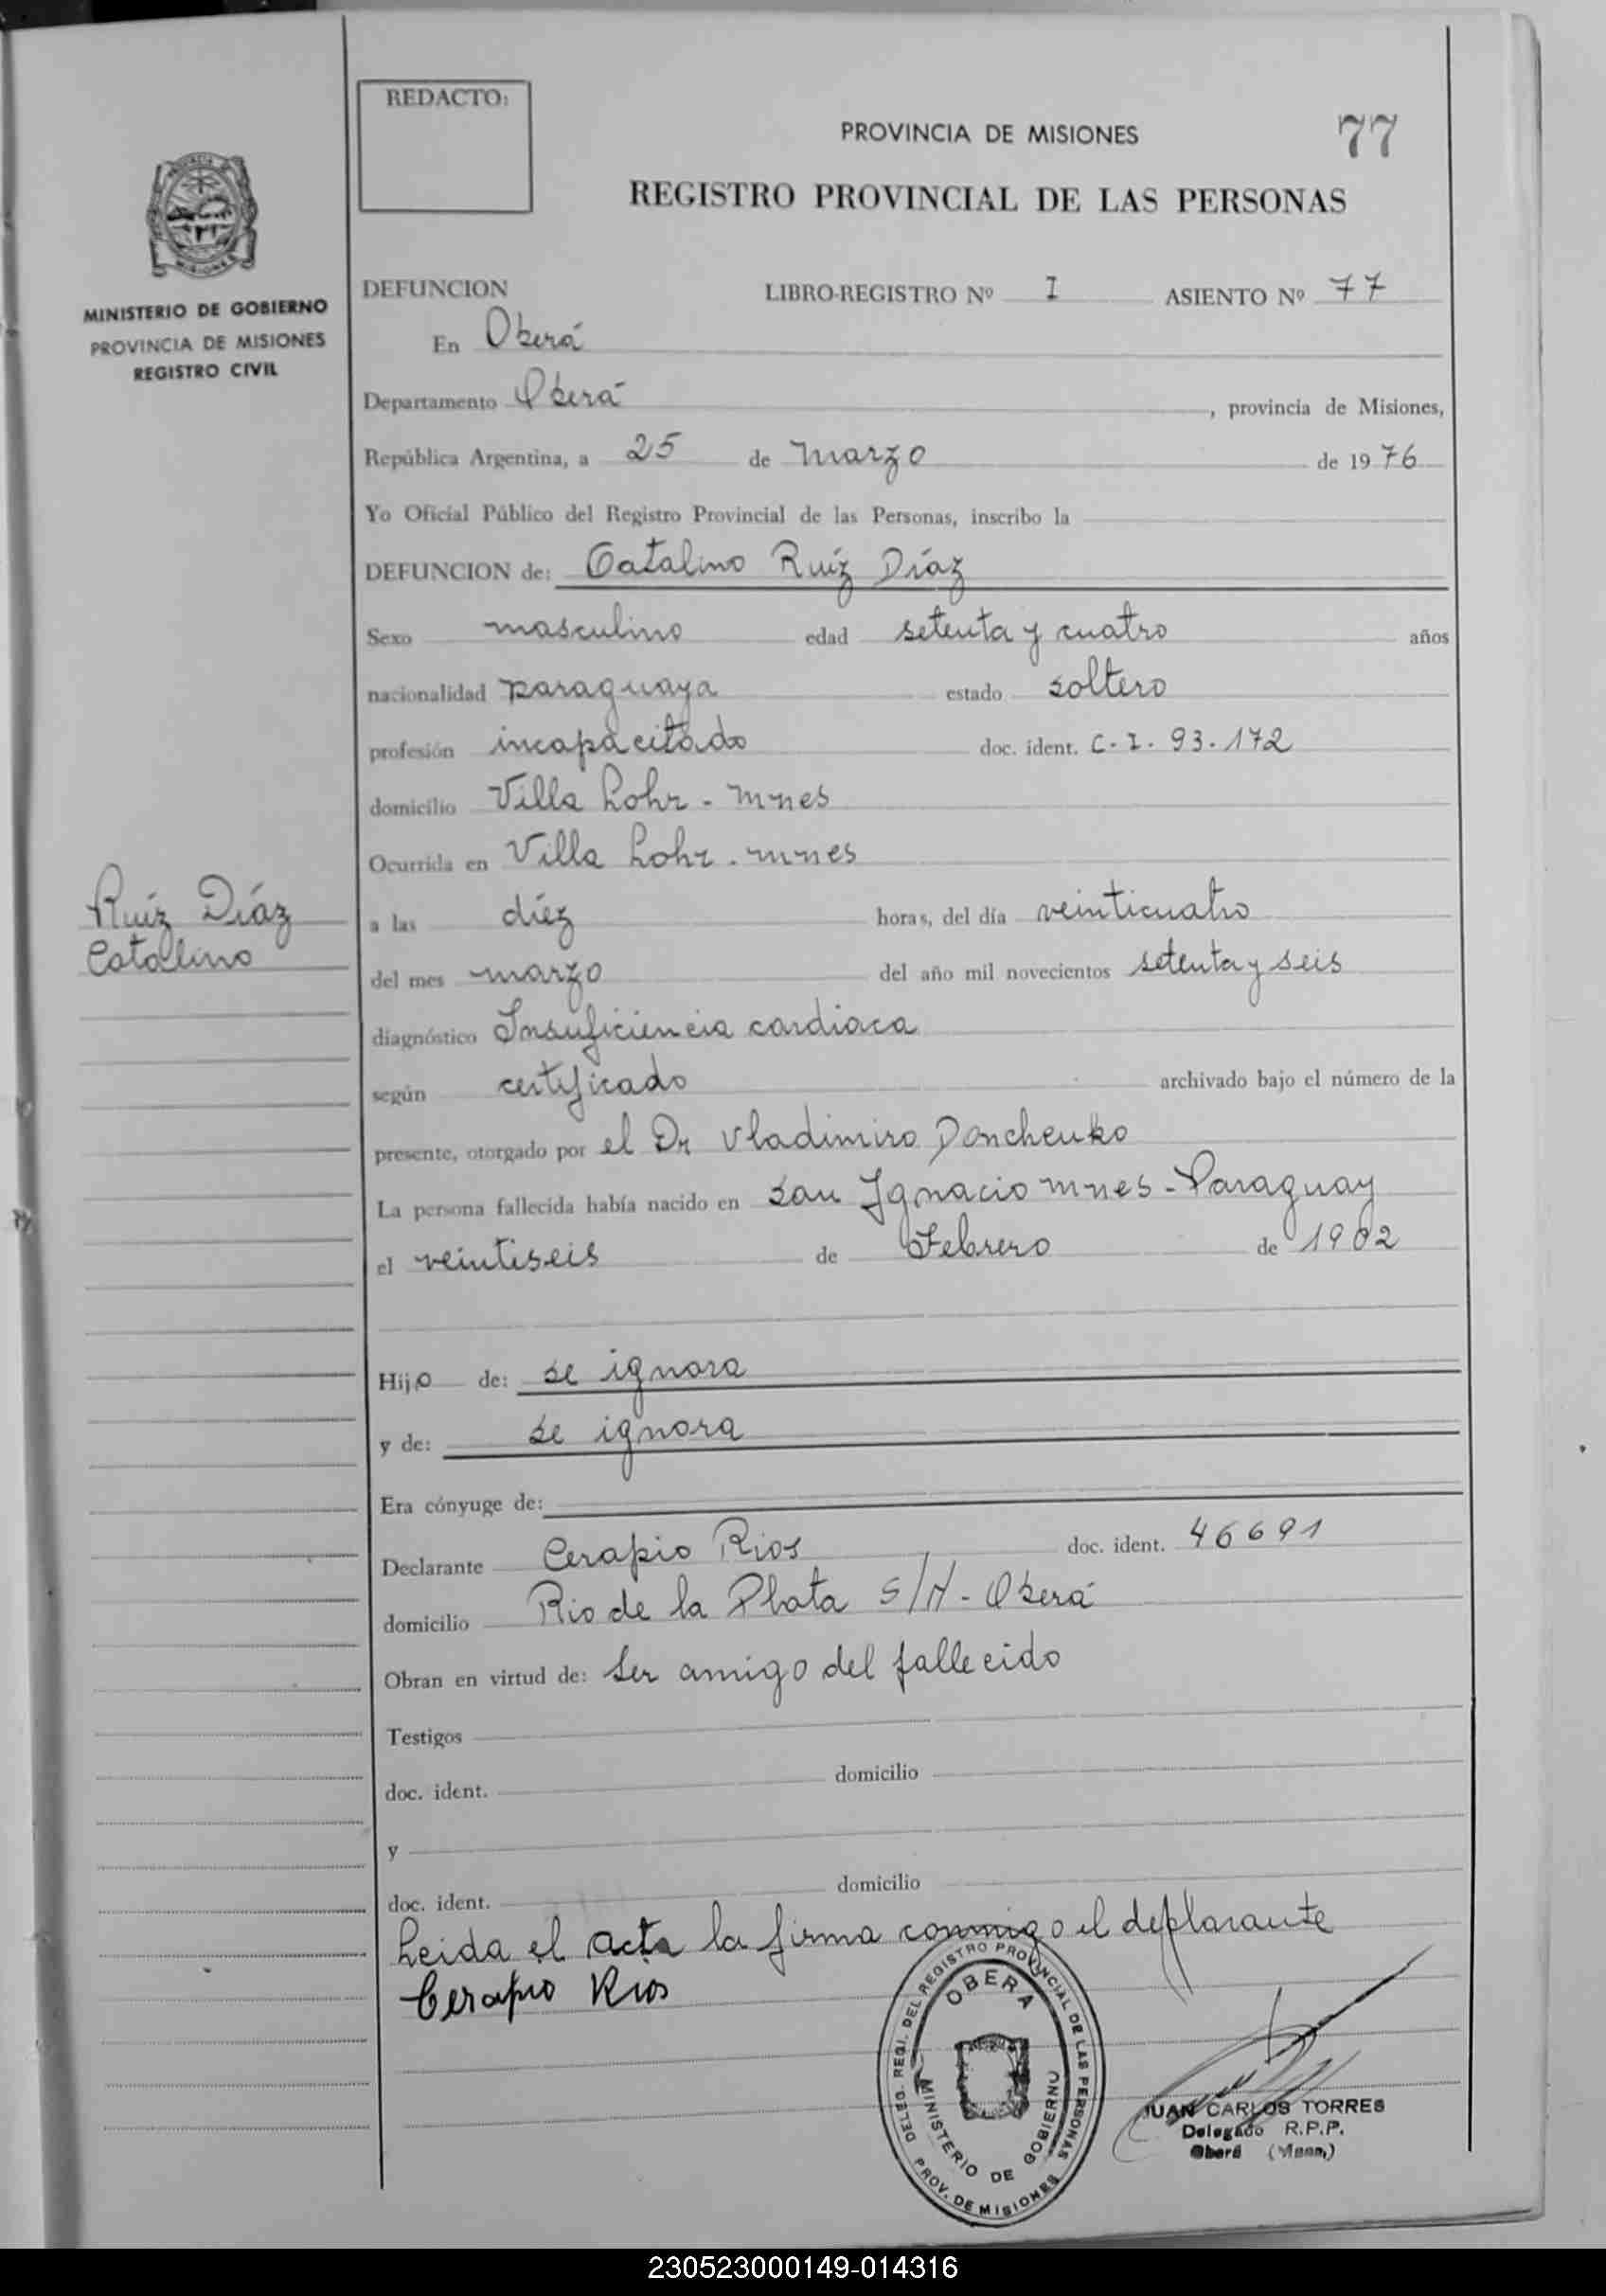 REDACTO:
PROVINCIA DE MISIONES
77
REGISTRO PROVINCIAL DE LAS PERSONAS
MINISTERIO DE GOBIERNO
PROVINCIA DE MISIONES
REGISTRO CIVIL
DEFUNCION LIBRO-REGISTRO Nº I ASIENTO Nº 77
En Oberá
Departamento Oberá, provincia de Misiones,
República Argentina, a 25 de marzo de 1976
Yo Oficial Público del Registro Provincial de las Personas, inscribo la
DEFUNCION de: Catalino Ruíz Díaz
Sexo masculino edad setenta y cuatro años
nacionalidad paraguaya estado soltero
profesión incapacitado doc. ident. C.I. 93.172
domicilio Villa Lohr - Mnes
Ocurrida en Villa Lohr - mnes
Ruíz Díaz
Catalino
a las díez horas, del día veinticuatro
del mes marzo del año mil novecientos setenta y seis
diagnóstico Insuficiencia cardiaca
según certificado archivado bajo el número de la
presente, otorgado por el Dr Vladimiro Donchenko
La persona fallecida había nacido en san Ignacio mnes - Paraguay
el veintiseis de Febrero de 1902
Hijo de: se ignora
y de: se ignora
Era cónyuge de:
Declarante Cerapio Rios doc. ident. 46691
domicilio Rio de la Plata S/N - Oberá
Obran en virtud de: ser amigo del fallecido
Testigos
doc. ident. domicilio
y
doc. ident. domicilio
Leida el acta la firma conmigo el deplarante
Cerapio Rios
DELEG. REGI. DEL REGISTRO PROVINCIAL DE LAS PERSONAS
OBERA
MINISTERIO DE GOBIERNO
PROV. DE MISIONES
JUAN CARLOS TORRES
Delegado R.P.P.
Oberá (Mnes.)
230523000149-014316